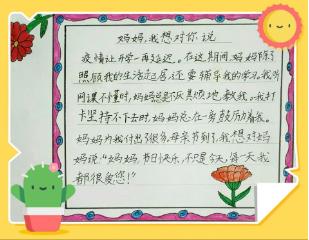 妈妈,我想对你说
疫情让开学一再延迟。在这期间,妈妈除了
照顾我的生活起居,还要辅导我的学习。我听
网课不懂时,妈妈总是不厌其烦地教我。我打
卡坚持不下去时,妈妈总在一旁鼓励着我。
妈妈为我付出了很多,母亲节到了,我想对妈
妈说:“妈妈,节日快乐,不只是今天,每一天我
都很爱您!”